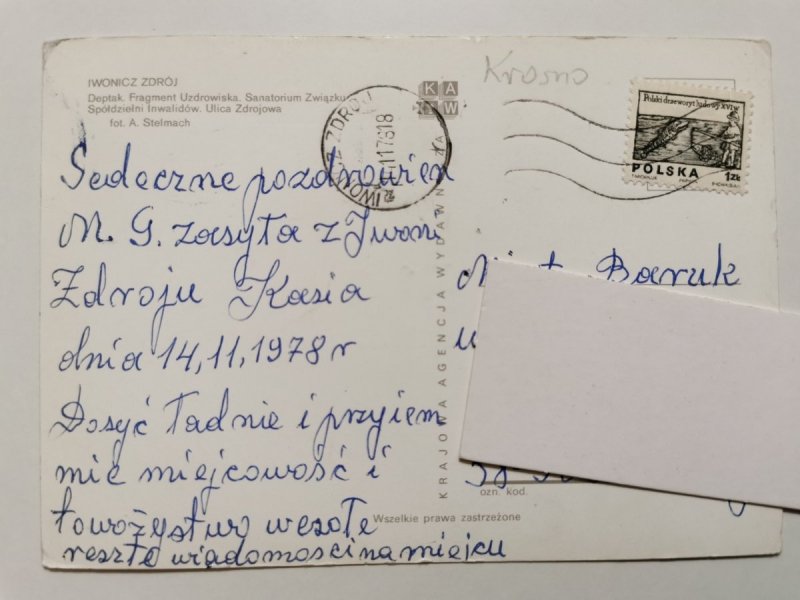 IWONICZ ZDRÓJ
Deptak. Fragment Uzdrowiska. Sanatorium Związku
Spółdzielni Inwalidów. Ulica Zdrojowa
fot. A. Stelmach
KAW
Krosno
IWONICZ ZDRÓJ
Polski drzeworyt ludowy XVI w.
POLSKA 1ZŁ
Sedeczne pozdrowien
M. G. zasyła z Iwoni
Zdroju Kasia
dnia 14,11,1978r
Dosyć ładnie i przyjem
mie miejcowość i
towożystwo wesołe
resztę wiadomości na miejcu
Baruk
KRAJOWA AGENCJA WYDAWNICZA
ozn. kod.
Wszelkie prawa zastrzeżone